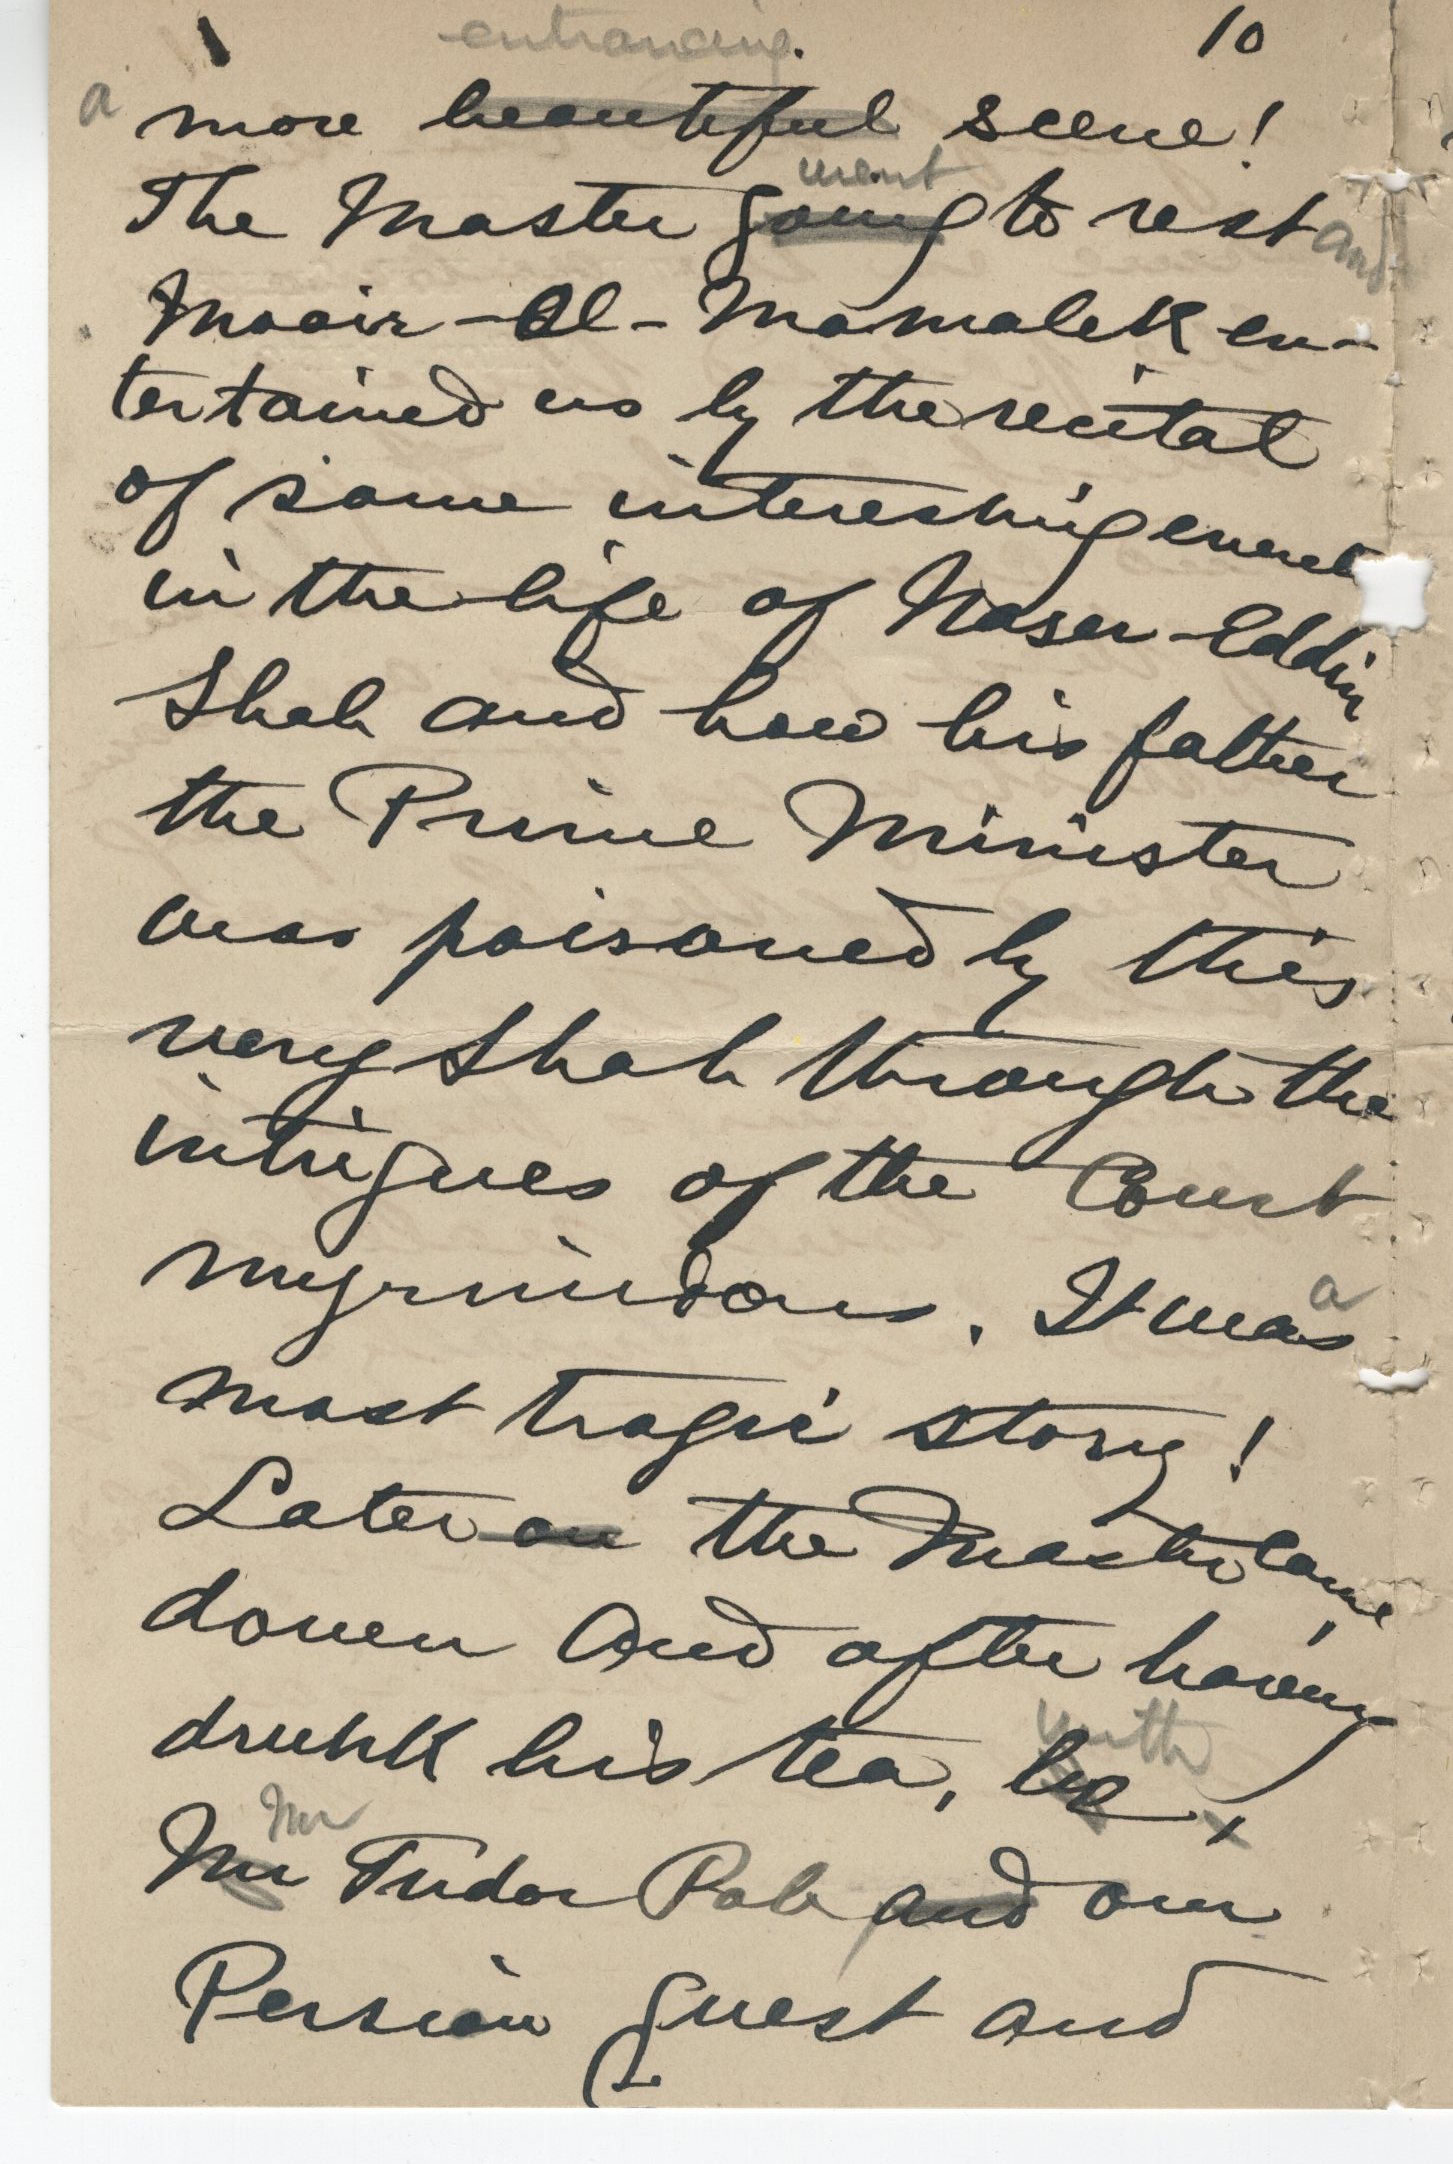 entrancing. 10
a more beautiful scene!
went
The Master going to rest and
Moair-Ol-Mamalek en-
tertained us by the recital
of some interesting event
in the life of Naser-Eddin
Shah and how his father
the Prime Minister
was poisoned by this
very Shah through the
intrigues of the Court
myrmidons. It was a
most tragic story!
Later on the Master came
down and after having
with
drunk his tea, he,
Mr
Mr Tudor Pole and our
Persian guest and